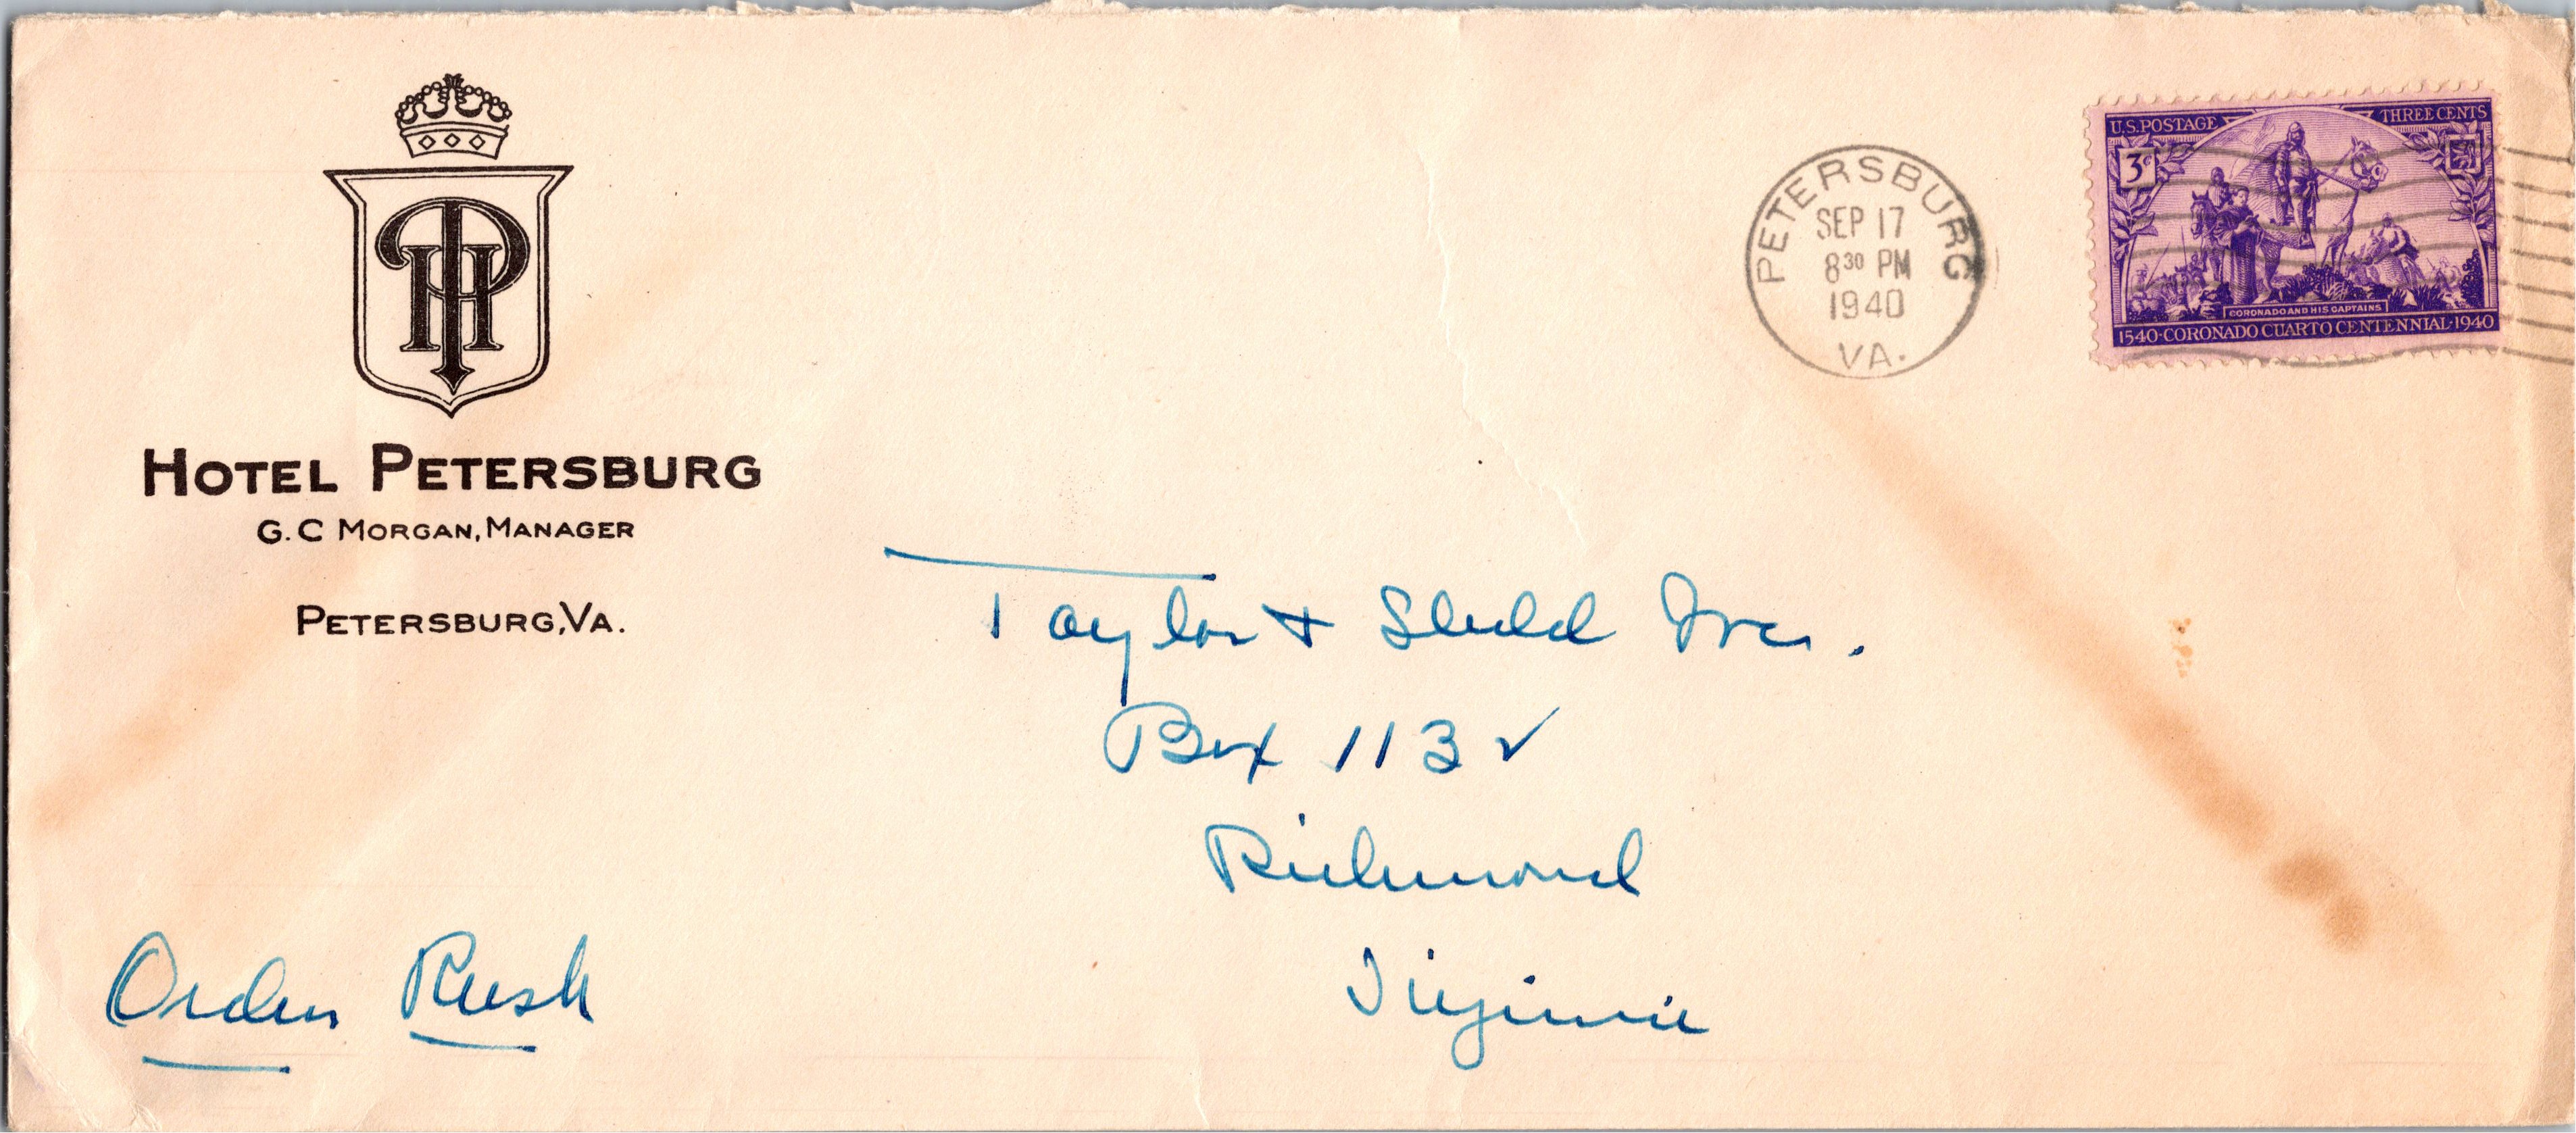 HOTEL PETERSBURG
G. C MORGAN, MANAGER
PETERSBURG, VA.
PETERSBURG
SEP 17
8 30 PM
1940
VA.
U.S. POSTAGE THREE CENTS
3¢
CORONADO AND HIS CAPTAINS
1540·CORONADO CUARTO CENTENNIAL·1940
Taylor + Inc.
Box 113
Richmond
Virginia
Order Rush